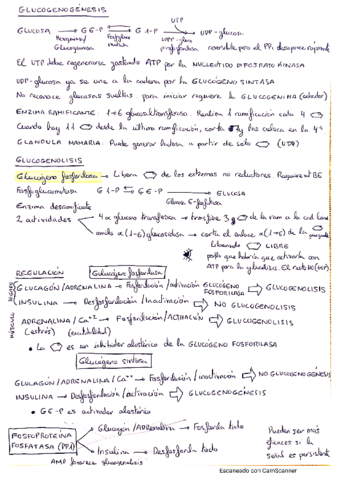 GLUCOGENOGÉNESIS
UTP
GLUCOSA → G 6-P ⇄ G 1-P → UDP-glucosa
Hexoquinasa/ Fosfogluco mutasa UDP-gluco pirofosforilasa reversible pero el PPi desaparece rápido
Glucoquinasa
El UTP debe regenerarse gastando ATP por la NUCLEÓTIDO DIFOSFATO KINASA
UDP-glucosa ya se une a la cadena por la GLUCÓGENO SINTASA
No reconoce glucosas sueltas. para iniciar requiere la GLUCOGENINA (cebador)
ENZIMA RAMIFICANTE: 1→6 glucosiltransferasa. Realiza 1 ramificación cada 4
Cuando hay 11 desde la última ramificación, corta y las coloca en la 4ª
GLÁNDULA MAMARIA: Puede generar lactosa a partir de solo (UDP)
GLUCOGENOLISIS
Glucógeno fosforilasa → Libera de los extremos no reductores. Requiere vit B6
Fosfoglucomutasa G 1-P ⇄ G 6-P → GLUCOSA
Glucosa 6-fosfatasa
Enzima desramificante
2 actividades 4α glucano transferasa → trasfiere 3 de la ram a la cad lineal
amilo α(1→6) glucosidasa → corta el enlace α(1→6) de la
Liberando LIBRE
ATP para la glucólisis. El resto NO (G6P)
REGULACIÓN Glucógeno fosforilasa
GLUCAGÓN/ADRENALINA → Fosforilación/activación GLUCÓGENO FOSFORILASA ⇨ GLUCOGENOLISIS
INSULINA → Desfosforilación/Inactivación ⇨ NO GLUCOGENOLISIS
MÚSCULO
ADRENALINA/Ca+2 → Fosforilación/ACTIVACIÓN ⇨ GLUCOGENOLISIS
(estrés)
• La es un inhibidor alostérico de la GLUCÓGENO FOSFORILASA
Glucógeno sintasa
GLUCAGÓN/ADRENALINA/Ca++ → Fosforilación/inactivación ⇨ NO GLUCOGENOGÉNESIS
INSULINA → Desfosforilación/activación ⇨ GLUCOGENOGÉNESIS
• G6-P es activador alostérico
FOSFOPROTEÍNA FOSFATASA (PP1) Glucagón/Adrenalina → Fosforila todo
Insulina → Desfosforila todo
Pueden ser más
eficaces si la
señal es persistente
AMP favorece glucogenolisis
Escaneado con CamScanner